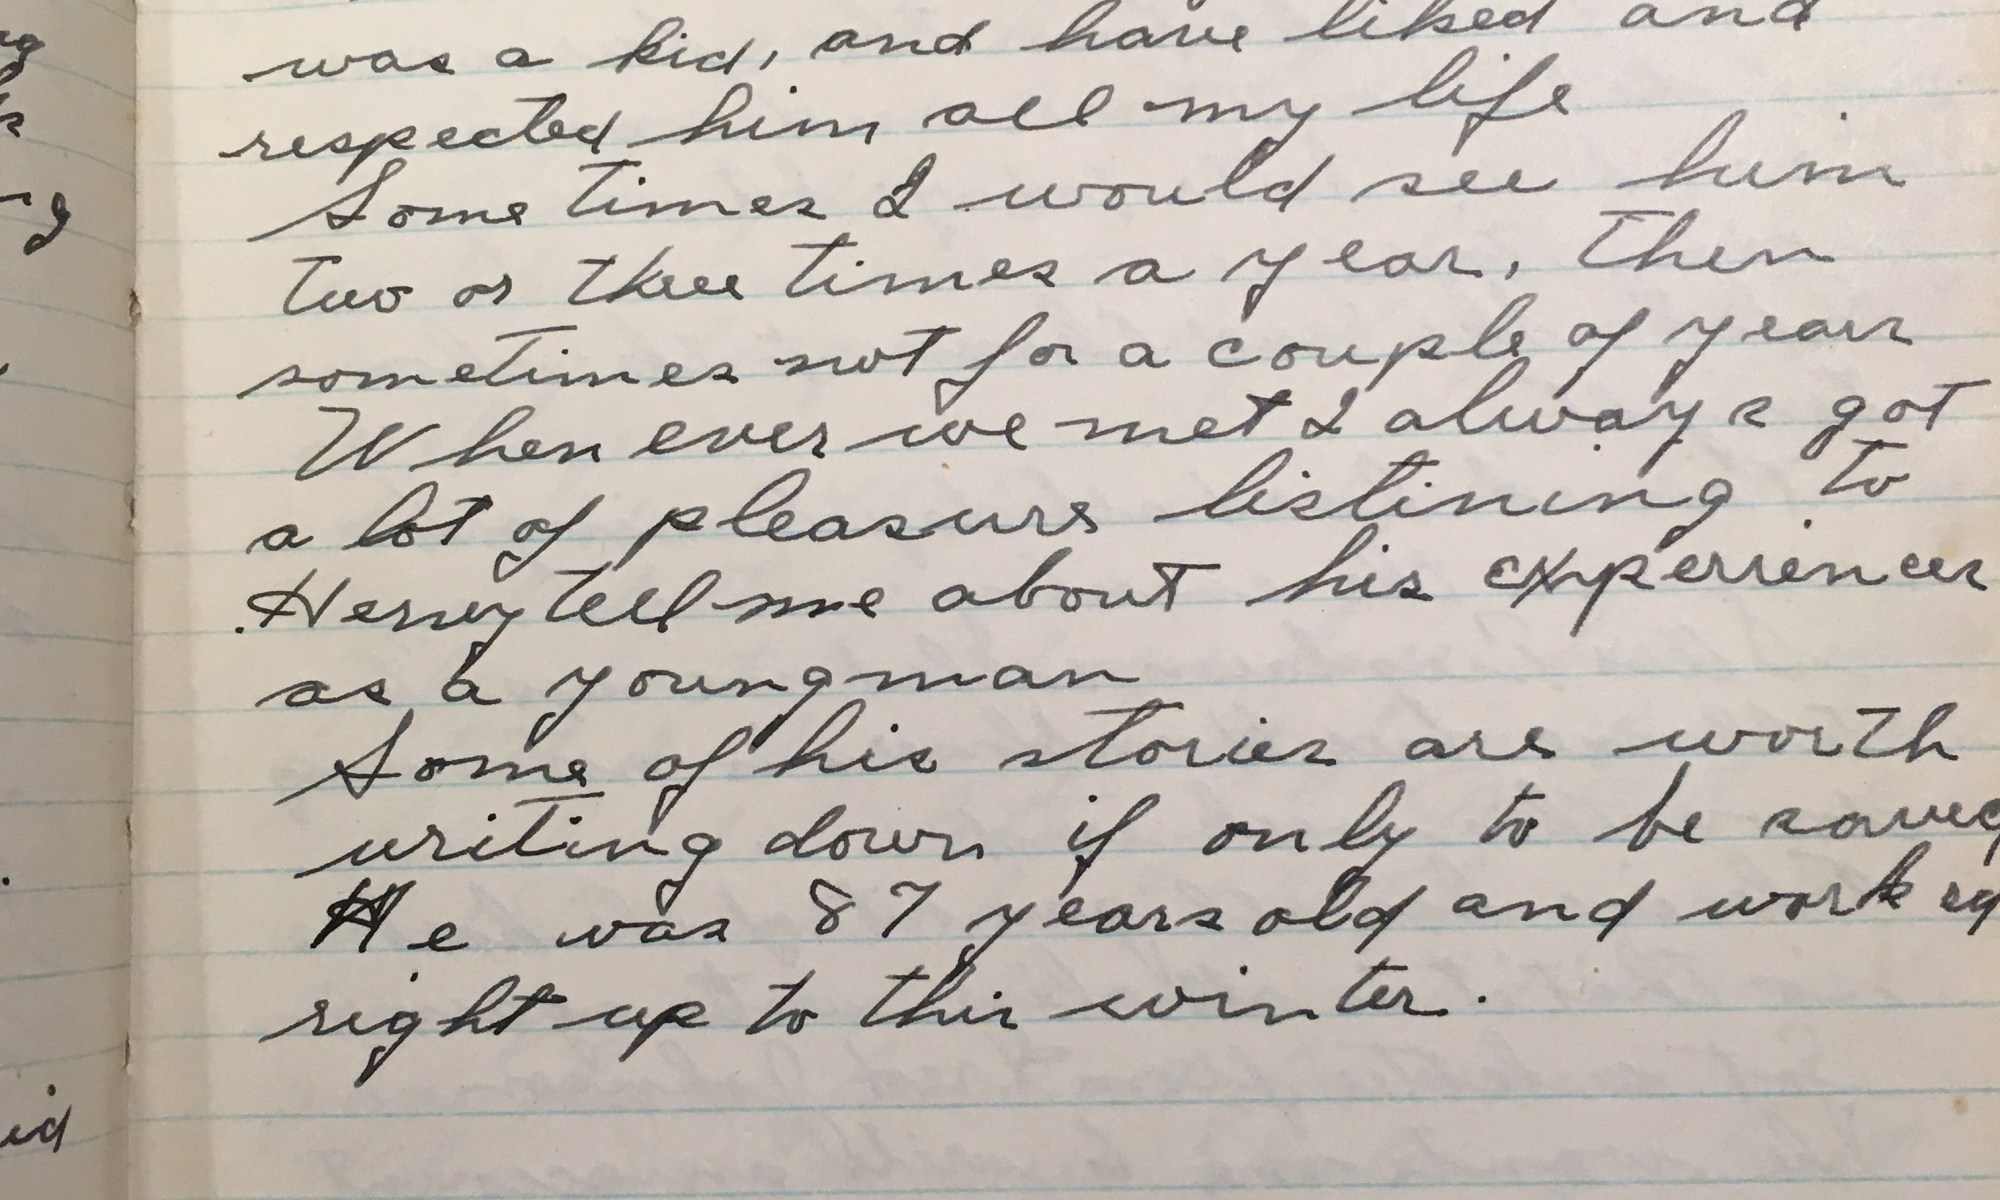 was a kid, and have liked and
respected him all my life
Some times I would see him
two or three times a year, then
sometimes not for a couple of years
When ever we met I always got
a lot of pleasure listining to
Henry tell me about his experriences
as a youngman
Some of his stories are worth
writing down if only to be saved
He was 87 years old and worked
right up to this winter.